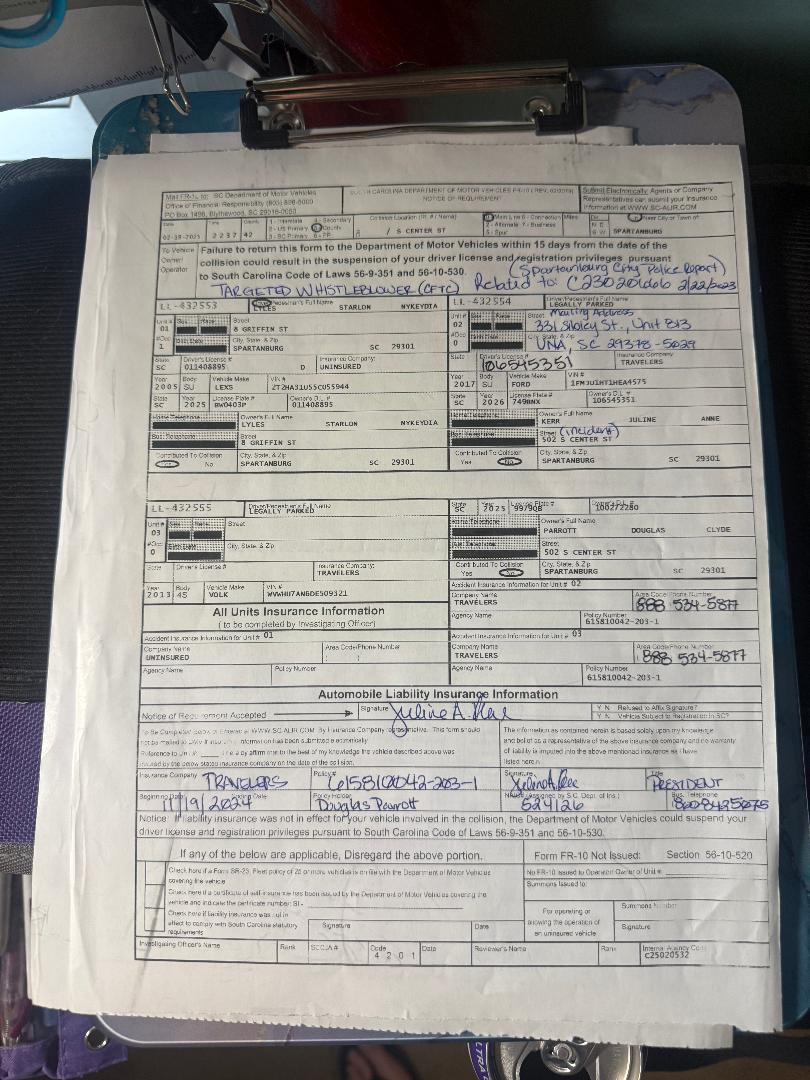 Mail FR-10 to: SC Department of Motor Vehicles
Office of Financial Responsibility (803) 896-5000
PO Box 1498, Blythewood, SC 29016-0050
SOUTH CAROLINA DEPARTMENT OF MOTOR VEHICLES FR-10
NOTICE OF REQUIREMENT
Submit Electronically: Agents or Company
Representatives can submit your Insurance
Information at WWW.SC-ALIR.COM
2237 42
1 - Interstate 4 - Secondary
2 - US Primary 5 - County
3 - SC Primary
Collision Location (Rt. # / Name)
/ S CENTER ST
Main Line 6 - Connection Miles
2 - Alternate 7 - Business
5 - Spur
Near City or Town of
SPARTANBURG
To Vehicle Owner Operator
Failure to return this form to the Department of Motor Vehicles within 15 days from the date of the
collision could result in the suspension of your driver license and registration privileges pursuant
to South Carolina Code of Laws 56-9-351 and 56-10-530.
(Spartanburg City Police Report)
TARGETED WHISTLEBLOWER (CFTC) Related to: C23020166 2/22/2023
LL-432553
Driver/Pedestrian's Full Name
LYLES STARLON NYKEYDIA
Unit # 01
Street
8 GRIFFIN ST
#Occ 1
City, State, & Zip
SPARTANBURG SC 29301
State SC
Driver's License # 011408895 D
Insurance Company: UNINSURED
Year 2005 Body SU Vehicle Make LEXS VIN # 2T2HA31U55C055944
State SC Year 2025 License Plate # BW0403P Owner's D.L. # 011408895
Home Telephone
Owner's Full Name
LYLES STARLON NYKEYDIA
Bus. Telephone
Street
8 GRIFFIN ST
Contributed To Collision
Yes No
City, State, & Zip
SPARTANBURG SC 29301
LL-432554
Driver/Pedestrian's Full Name
LEGALLY PARKED
Unit # 02
Street Mailing Address
331 Sibley St., Unit 813
#Occ 0
City, State, & Zip
UNA, SC 29378-5029
State
Driver's License #
106545351
Insurance Company
TRAVELERS
Year 2017 Body SU Vehicle Make FORD VIN # 1FMJU1HT1HEA4575
State SC Year 2026 License Plate # 749BNX Owner's D.L. # 106545351
Owner's Full Name
KERR JULINE ANNE
Street (incident)
502 S CENTER ST
Contributed To Collision
Yes No
City, State, & Zip
SPARTANBURG SC 29301
LL-432555
Driver/Pedestrian's Full Name
LEGALLY PARKED
Unit # 03
Street
#Occ 0
City, State, & Zip
State Driver's License #
Insurance Company:
TRAVELERS
Year 2013 Body 4S Vehicle Make VOLK VIN # WVWHU7AN6DE509321
State SC Year 2025 License Plate # 9979QB Owner's D.L. # 100272280
Owner's Full Name
PARROTT DOUGLAS CLYDE
Street
502 S CENTER ST
Contributed To Collision
Yes No
City, State, & Zip
SPARTANBURG SC 29301
All Units Insurance Information
( to be completed by Investigating Officer)
Accident Insurance Information for Unit # 01
Company Name
UNINSURED
Area Code/Phone Number
Agency Name Policy Number
Accident Insurance Information for Unit # 02
Company Name
TRAVELERS
Area Code/Phone Number
888 534-5877
Agency Name
Policy Number
615810042-203-1
Accident Insurance Information for Unit # 03
Company Name
TRAVELERS
Area Code/Phone Number
888 534-5877
Agency Name
Policy Number
615810042-203-1
Automobile Liability Insurance Information
Notice of Requirement Accepted
Signature
Y N Refused to Affix Signature?
Y N Vehicle Subject to Registration in SC?
The information as contained herein is based solely upon my knowledge
and belief as a representative of the above insurance company and no warranty
of liability is imputed into the above mentioned insurance as I have
listed herein
Insurance Company TRAVELERS
Policy# 615810042-203-1
Signature
Title PRESIDENT
Beginning Date 11/19/2024
Policy Holder Douglas Parrott
524126
Bus. Telephone
Notice: If liability insurance was not in effect for your vehicle involved in the collision, the Department of Motor Vehicles could suspend your
driver license and registration privileges pursuant to South Carolina Code of Laws 56-9-351 and 56-10-530.
If any of the below are applicable, Disregard the above portion.
Form FR-10 Not Issued: Section 56-10-520
Check here if a Form SR-23, Fleet policy of 25 or more vehicles is on file with the Department of Motor Vehicles
covering the vehicle
Check here if a certificate of self-insurance has been issued by the Department of Motor Vehicles covering the
vehicle and indicate the certificate number: SI -
Check here if liability insurance was not in
effect to comply with South Carolina statutory
requirements
Signature Date
No FR-10 Issued to Operator/Owner of Unit #
Summons Issued to:
For operating or
allowing the operation of
an uninsured vehicle
Summons Number
Signature
Investigating Officer's Name Rank SCCJA # Code 4201 Date Reviewer's Name Rank Internal Agency Code C25020532